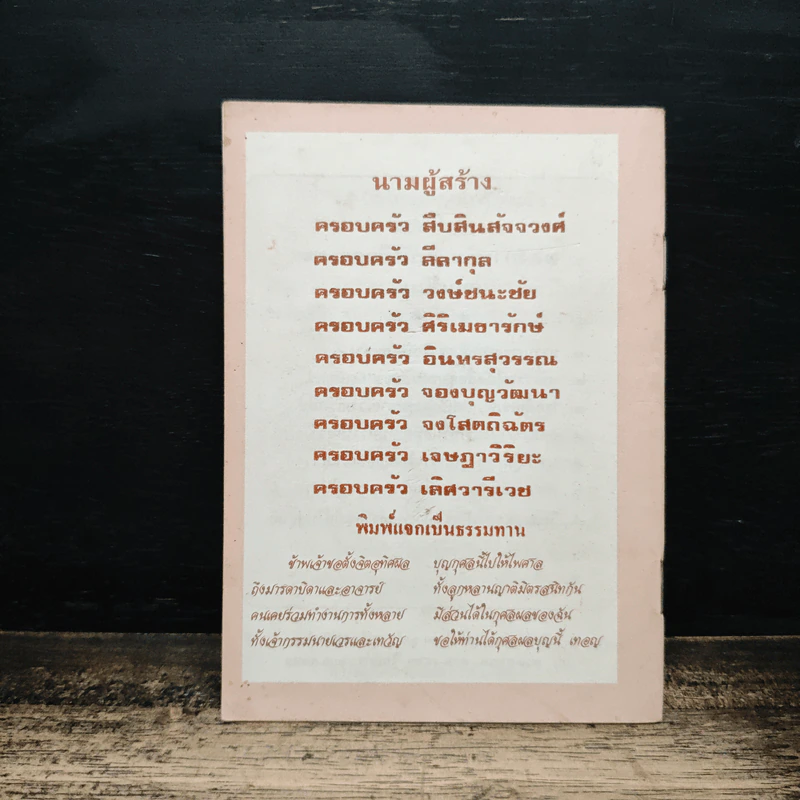 นามผู้สร้าง
ครอบครัว สืบสินสัจจวงศ์
ครอบครัว ลีลากุล
ครอบครัว วงษ์ชนะชัย
ครอบครัว ศิริเมธารักษ์
ครอบครัว อินทรสุวรรณ
ครอบครัว จองบุญวัฒนา
ครอบครัว จงโสตถิฉัตร
ครอบครัว เจษฎาวิริยะ
ครอบครัว เลิศวารีเวช
พิมพ์แจกเป็นธรรมทาน
ข้าพเจ้าขอตั้งจิตอุทิศผล บุญกุศลนี้ไปให้ไพศาล
ถึงมารดาบิดาและอาจารย์ ทั้งลูกหลานญาติมิตรสนิทกัน
คนเคยร่วมทำงานการทั้งหลาย มีส่วนได้ในกุศลผลของฉัน
ทั้งเจ้ากรรมนายเวรและเทวัญ ขอให้ท่านได้กุศลผลบุญนี้ เทอญ